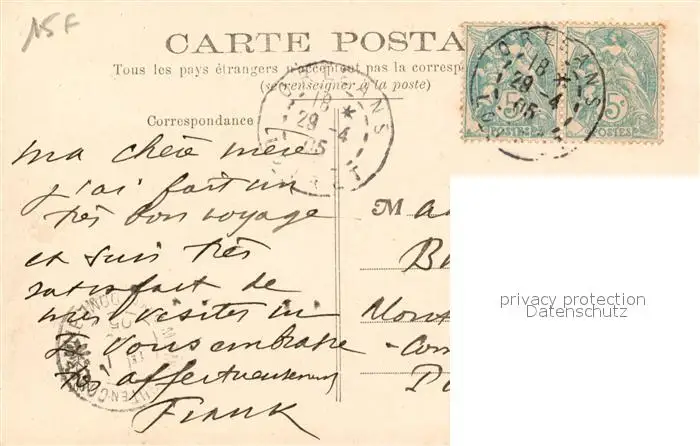 15F
CARTE POSTA
Tous les pays étrangers n'acceptent pas la corresp
(se renseigner à la poste)
ORLEANS
18 *
29 -4
05
LOIRET
ORLEANS
18 *
29 -4
05
5c 5c
POSTES POSTES
Correspondance
ma chère mère
j'ai fait un
très bon voyage
et suis très
satisfait de
mes visites ici
Je vous embrasse
très affectueusement
Frank
M
Mont
-Com
privacy protection
Datenschutz